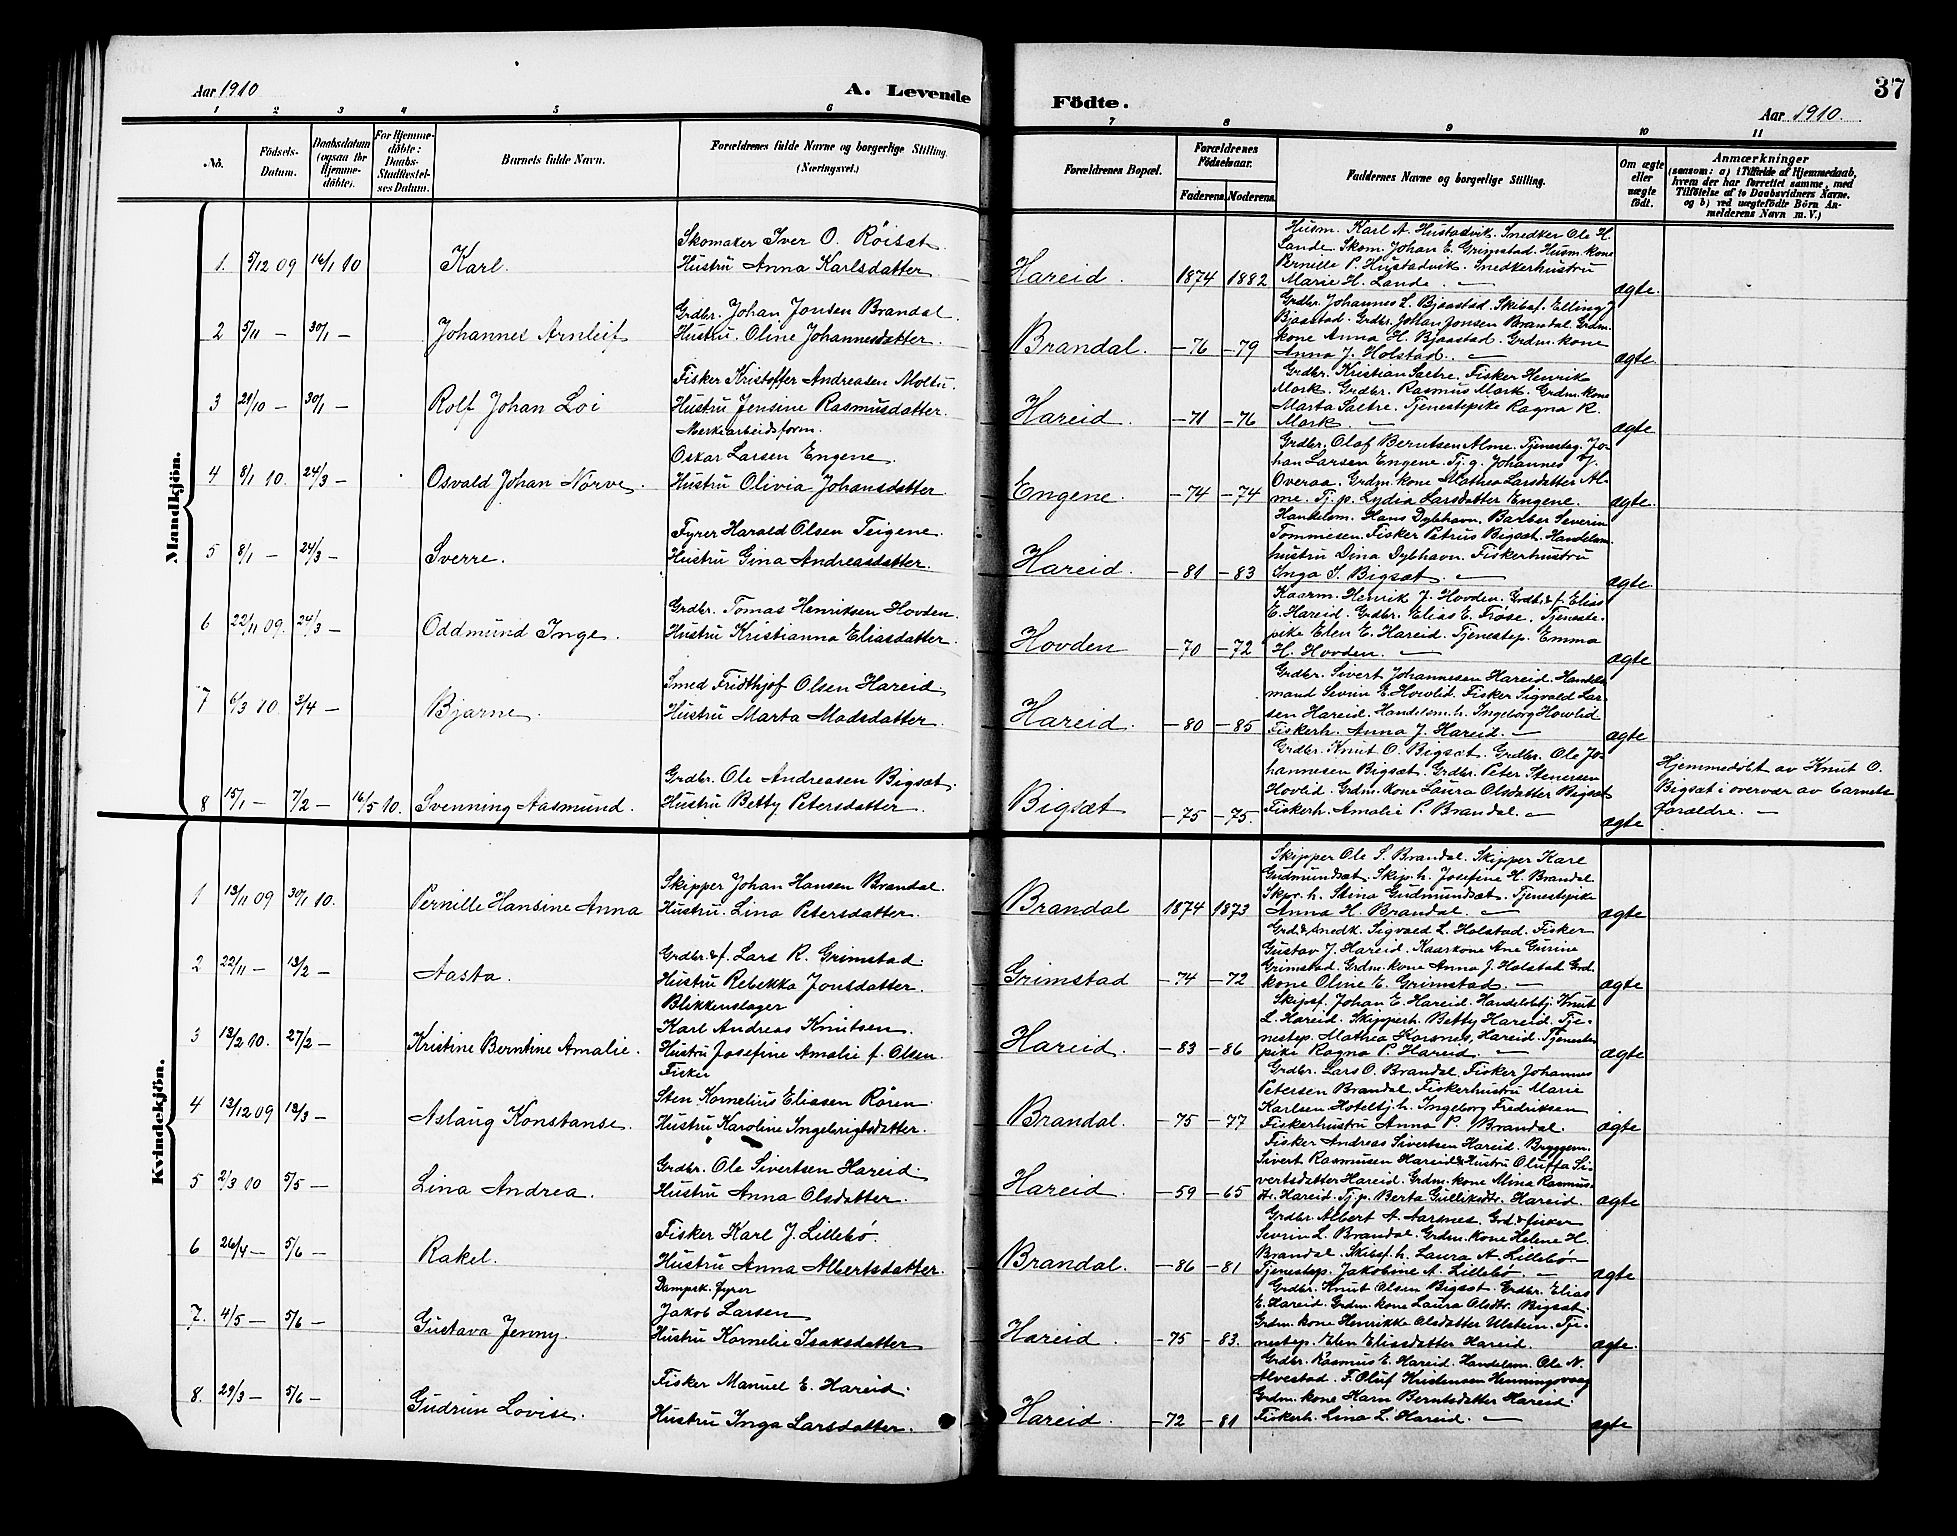 Aar 1910
A. Levende
Födte.
37
Aar 1910.
1 2 3 4 5 6 7 8 9 10 11
No.
Födsels-
Datum.
Daabsdatum
(ogsaa for
Hjemme-
döbte).
For Hjemme-
döbte:
Daabs-
Stadfæstel-
ses Datum.
Barnets fulde Navn.
Forældrenes fulde Navne og borgerlige Stilling.
(Næringsvei.)
Forældrenes Bopæl.
Forældrenes
Födselsaar.
Faderens.
Moderens.
Faddernes Navne og borgerlige Stilling.
Om ægte
eller
uægte
födt.
Anmærkninger
(saasom: a) i Tilfælde af Hjemmedaab,
hvem der har forrettet samme, med
Tilföielse af to Daabsvidners Navne.
og b) ved uægtefödte Börn An-
melderens Navn m. V.)
Mandkjön.
1. 5/12 09 16/1 10 Karl.
Skomaker Iver O. Röisæt.
Hustru Anna Karlsdatter.
Hareid. 1874 1882
Husm. Karl A. Hustadvik. Snedker Ole H.
Lande. Skom. Johan E. Grimstad. Husm. kone
Pernille P. Hustadvik. Snedkerhustru
Marie H. Lande. —
ægte.
2 5/11 — 30/1 — Johannes Arnleif
Grdbr. Johan Jonsen Brandal.
Hustru. Oline Johannesdatter.
Brandal. —76 —79
Grdbr. Johannes L. Bjaastad. Skibsf. Elling J.
Bjaastad. Grdbr. Johan Jonsen Brandal. Grdm.
kone Anna H. Bjaastad. Grdm. kone
Anna J. Holstad. —
ægte.
3 21/10 — 30/1 — Rolf Johan Loi
Fisker Kristoffer Andreasen Moltu.
Hustru Jensine Rasmusdatter.
Hareid. —71 —76
Grdbr. Kristian Sætre. Fisker Henrik
Mork. Grdbr. Rasmus Mork. Grdm. kone
Marta Sætre. Tjenestepike Ragna R.
Mork. —
ægte
4 8/1 10. 24/3 — Osvald Johan Nörve.
Oskar Larsen Engene.
Hustru Olivia Johansdatter
Engene. —74 —74
Grdbr. Olaf Berntsen Alme. Tjenesteg. Jo-
han Larsen Engene. Tj. g. Johannes J.
Overaa. Grdm. kone Mathea Larsdatter Al-
me. Tj. p. Lydia Larsdatter Engene.
ægte.
5 8/1 — 24/3 — Sverre.
Fyrer Harald Olsen Teigene.
Hustru Gina Andreasdatter.
Hareid. —81 —83
Handelsm. Hans Dybhavn. Barber Severin
Tommesen. Fisker Petrus Bigsæt. Handelsm.
hustru Dina Dybhavn. Fiskerhustru
Inga S. Bigsæt. —
ægte.
6 22/11 09. 24/3 — Oddmund Inge.
Grdbr. Tomas Henriksen Hovden.
Hustru Kristianna Eliasdatter.
Hovden —70 —72
Kaarm. Henrik J. Hovden. Grdb. & f. Elias
E. Hareid. Grdbr. Elias E. Fröse. Tjeneste-
pike Elen E. Hareid. Tjenestep. Emma
H. Hovden. —
ægte
7 6/3 10. 3/4 — Bjarne.
Smed Fridthjof Olsen Hareid.
Hustru Marta Madsdatter.
Hareid. —80 —85
Grdbr. Sivert Johannesen Hareid. Handels-
mand Sevrin E. Hovlid. Fisker Sigvald Lar-
sen Hareid. Handelsm. h. Ingeborg Hovlid
Fiskerh. Anna J. Hareid. —
ægte
8 15/1 — 7/2 — 16/5 10. Svenning Aasmund.
Grdbr. Ole Andreasen Bigsæt.
Hustru Betty Petersdatter.
Bigsæt —75 —75.
Grdbr. Knut O. Bigsæt. Grdbr. Ole Jo-
hannesen Bigsæt. Grdbr. Peter Stenersen
Hovlid. Grdm. kone Laura Olsdatter Bigsæt
Fiskerh. Amalie P. Brandal. —
ægte
Hjemmedöbt av Knut O.
Bigsæt i overvær av barnets
forældre. —
Kvindekjön.
1 13/11 09 30/1 10. Pernille Hansine Anna
Skipper Johan Hansen Brandal.
Hustru. Lina Petersdatter.
Brandal 1874 1873
Skipper Ole S. Brandal. Skipper Karl
Gudmundsæt. Skip. h. Josefine H. Brandal
Skpr. h. Stina Gudmundsæt. Tjenestepike
Anna H. Brandal. —
ægte
2 22/11 — 13/2 — Aasta.
Grdbr. & f. Lars R. Grimstad.
Hustru Rebekka Jonsdatter.
Grimstad —74 —72
Grd. & snedk. Sigvald L. Holstad. Fisker
Gustav J. Hareid. Kaarkone Ane Gurine
Grimstad. Grdm. kone Anna J. Holstad. Grd.
kone Oline E. Grimstad. —
ægte
3 13/2 10. 27/2 — Kristine Berntine Amalie.
Blikkenslager
Karl Andreas Knutsen.
Hustru Josefine Amalie f. Olsen.
Hareid. —83 —86
Skipsf. Johan E. Hareid. Handelsbtj. Knut
L. Hareid. Skipperh. Betty Hareid. Tje-
nestep. Mathea Korsnes, Hareid. Tjeneste-
pike Ragna P. Hareid. —
ægte
4 13/12 09 13/3 — Aslaug Konstanse.
Fisker
Sten Kornelius Eliasen Rören.
Hustru Karoline Ingebrigtsdatter.
Brandal. —75 —77
Grdbr. Lars O. Brandal. Fisker Johannes
Petersen Brandal. Fiskerhustru Marie
Karlsen. Hotelbtj. h. Ingeborg Fredriksen
Fiskerhustru Anna P. Brandal.
ægte
5 2/3 10 5/5 — Lina Andrea.
Grdbr. Ole Sivertsen Hareid.
Hustru Anna Olsdatter.
Hareid. —59 —65
Fisker Andreas Sivertsen Hareid. Byggem.
Sivert Rasmussen Hareid & Hustru Oluffa Si-
vertsdatter Hareid. Grdm. kone Mina Rasmus-
dtr. Hareid. Tj. p. Berta Gulliksdtr. Hareid.
ægte
6 26/4 — 5/6 — Rakel.
Fisker Karl J. Lillebö.
Hustru Anna Albertsdatter.
Brandal. —86 —81
Grdbr. Albert A. Aarsnes. Grd. & fisker
Sevrin L. Brandal. Grdm. kone Helene H.
Brandal. Skibsf. h. Laura A. Lillebö. —
Tjenestep. Jakobine A. Lillebö. —
ægte
7. 4/5 — 5/6 — Gustava Jenny.
Dampsk. fyrer
Jakob Larsen
Hustru Kornelie Isaksdatter
Hareid —75 —83.
Grdbr. Knut Olsen Bigsæt. Grdbr. Elias
E. Hareid. Grdm. kone Laura Olsdtr. Bigsæt.
Grdm. kone Henrikke Olsdatter Ulstein. Tje-
nestep. Elen Eliasdatter Hareid.
ægte.
8. 29/3 — 5/6 — Gudrun Lovise.
Fisker Manuel E. Hareid.
Hustru Inga Larsdatter.
Hareid. —72 —81
Grdbr. Rasmus E. Hareid. Handelsm. Ole N.
Alvestad. F. Oluf Kristensen Henningsvaag
Grdm. kone Karn Berntsdatter Hareid.
Fiskerh. Lina L. Hareid. —
ægte